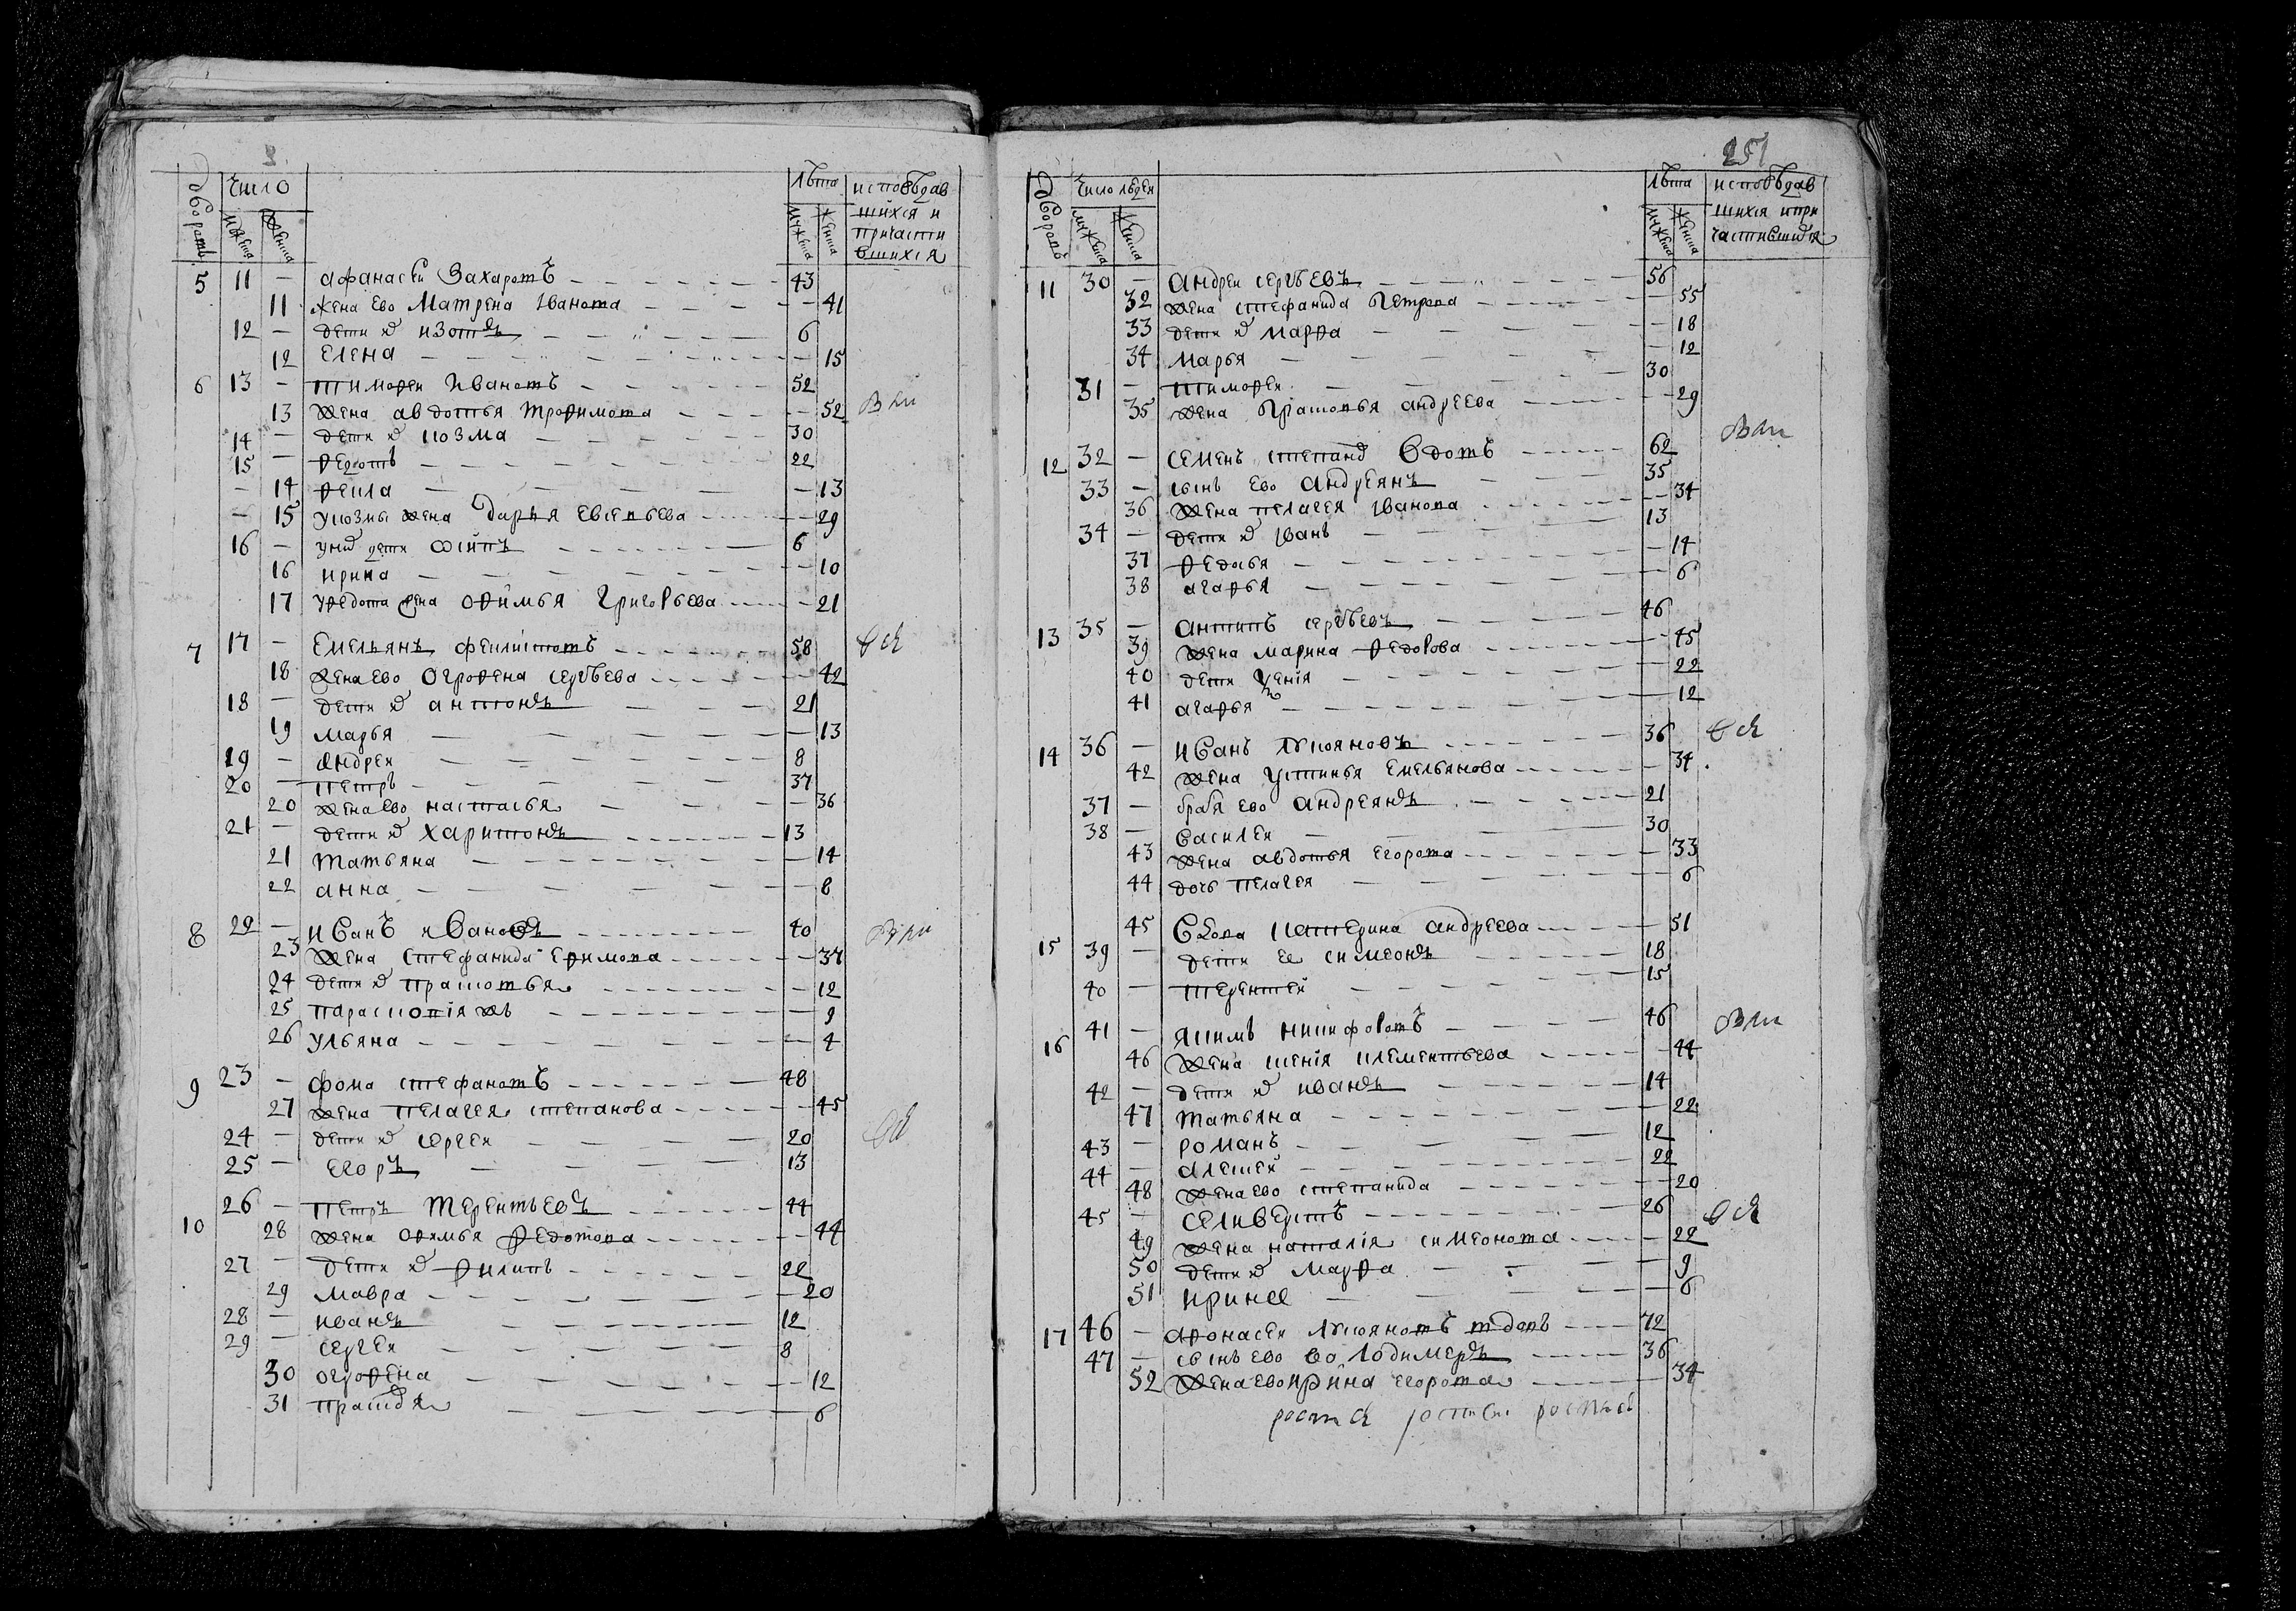 251
дворовъ число лѣта исповѣдав
мужеска женска мужеска женска шихся и
причасти
вшихся
5 11 — афанасеи Захаровъ 43
11 жена ево Матрена Iванова 41
12 — дети их изотъ 6
12 Елена 15
6 13 — тимофеи Ивановъ 52
13 жена авдотья трофимова 52
14 — дети их козма 30
15 — федотъ 22
14 фекла 13
15 у козмы жена Дарья Евсевьева 29
16 — у них дети 6
16 ирина 10
17 у федота жена офимья Григорьева 21
7 17 — Емельянъ филиповъ 58
18 жена ево Огрофена сергѣева 42
18 — дети их антонъ 21
19 марья 13
19 — андреи 8
20 — петръ 37
20 жена ево настасья 36
21 — дети их харитонъ 13
21 татьяна 14
22 анна 8
8 22 — иванъ ивановъ 40
23 жена стефанида Ефимова 37
24 дети их прасковья 12
25 параскопiя жъ 9
26 ульяна 4
9 23 — фома стефановъ 48
27 жена пелагея степанова 45
24 — дети их сергеи 20
25 — егоръ 13
10 26 — петръ терентьевъ 44
28 жена офимья федотова 44
27 — дети их филипъ 22
29 мавра 20
28 — иванъ 12
29 — сергеи 8
30 огрофена 12
31 6
дворовъ число людеи лѣта исповѣдав
мужеска женска мужеска женска шихся и при
частившихся
11 30 — андреи сергѣевъ 56
32 жена стефанида Петрова 55
33 дети их марфа 18
34 марья 12
31 — тимофеи 30
35 жена Прасковья андреева 29
12 32 — семенъ степановъ вдовъ 62
33 — сынъ ево андреянъ 35
36 жена пелагея Iванова 34
34 — дети их Iванъ 13
37 федосья 14
38 агафья 6
13 35 — антипъ сергѣевъ 46
39 жена марина федорова 45
40 дети 22
41 агафья 12
14 36 — иванъ лукояновъ 36
42 жена устинья емельянова 34
37 — братъ ево андреянъ 21
38 — василеи 30
43 жена авдотья егорова 33
44 дочь пелагея 6
45 вдова катерина андреева 51
15 39 — дети ее симеонъ 18
40 — терентеи 15
16 41 — якимъ никифоровъ 46
46 жена ксенiя клементьева 44
42 — дети их иванъ 14
47 татьяна 22
43 — романъ 12
44 — алексеи 22
48 жена ево степанида 20
45 — селиверстъ 26
49 жена наталiя симеонова 22
50 дети их марфа 9
51 ирина 6
17 46 — афонасеи лукояновъ вдовъ 72
47 — сынъ ево володимеръ 36
52 жена ево ирина егорова 34